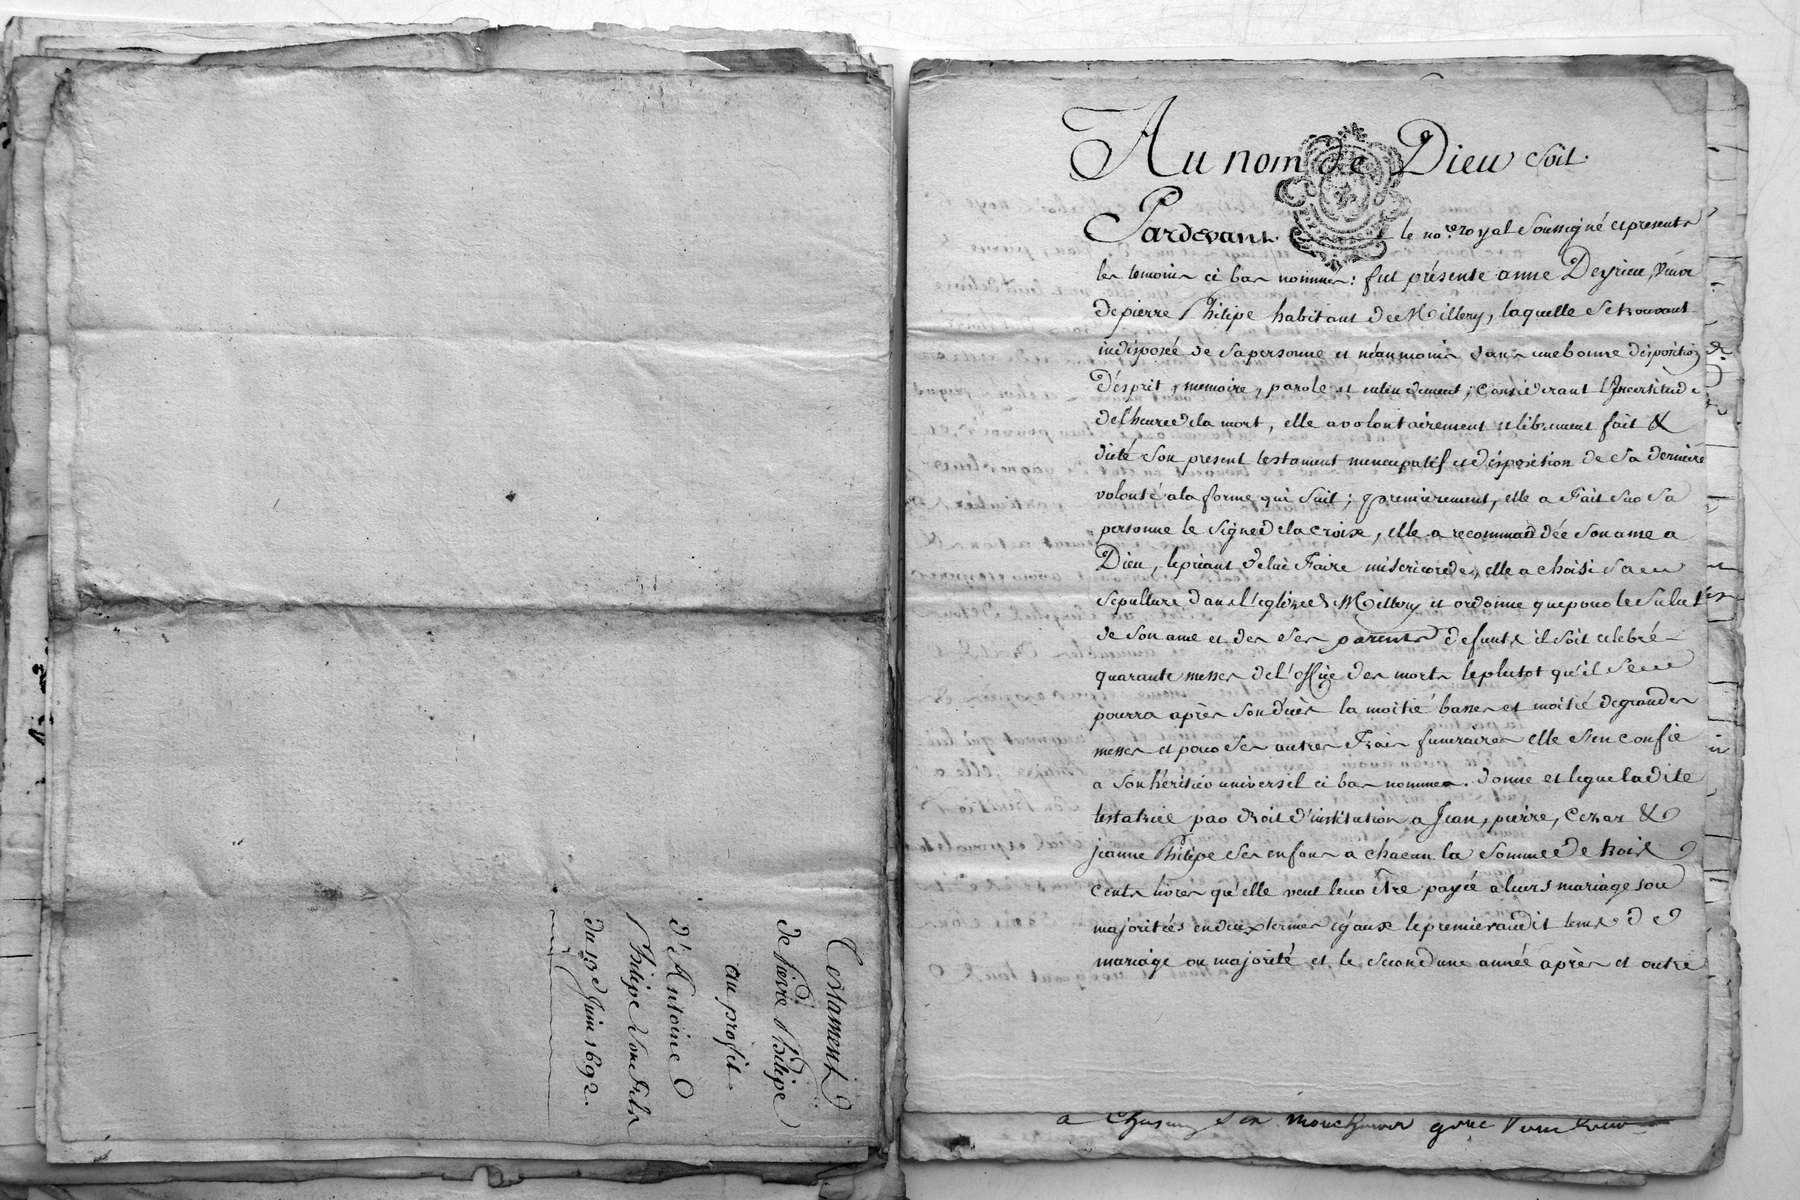 Testament
de Pierre Philipe
au profit
d'Antoine
Philipe son fils
du 13e Juin 1692.
Au nom de Dieu soit
Pardevant le nore. royal soussigné et presents
les temoins ci bas nommes: fut présente anne Deyrieu, veuve
de pierre Philipe habitant de Millery, laquelle se trouvant
indisposée de sa personne et néanmoins dans une bonne disposition
d'ésprit, memoire, parole et entendement; considerant l'Incertitude
de l'heure de la mort, elle a volontairement et librement fait &
dicté son present testament nuncupatif et disposition de sa derniére
volonté a la forme qui suit; premierement, elle a Fait sur sa
personne le signe de la croix, elle a recommandée son ame a
Dieu, le priant de lui Faire misericorde, elle a choisi sa
sepulture dans l'eglize de Millery et ordonne que pour le salut
de son ame et des ses parents defunts il soit celebré
quarante messes de l'office des morts le plutot qu'il se
pourra après son décès la moitié basses et moitié de grandes
messes et pour ses autres Frais funeraires elle s'en confie
a son héritier universel ci bas nommer. donne et legue ladite
testatrice par droit d'institution a Jean, pierre, Cezar &
jeanne Philipe ses enfans a chacun la somme de trois
cents livres qu'elle veut leur être payée a leurs mariages ou
majorités en deux termes égaux le premier audit tems de
mariage ou majorité et le second une année après et outre
a